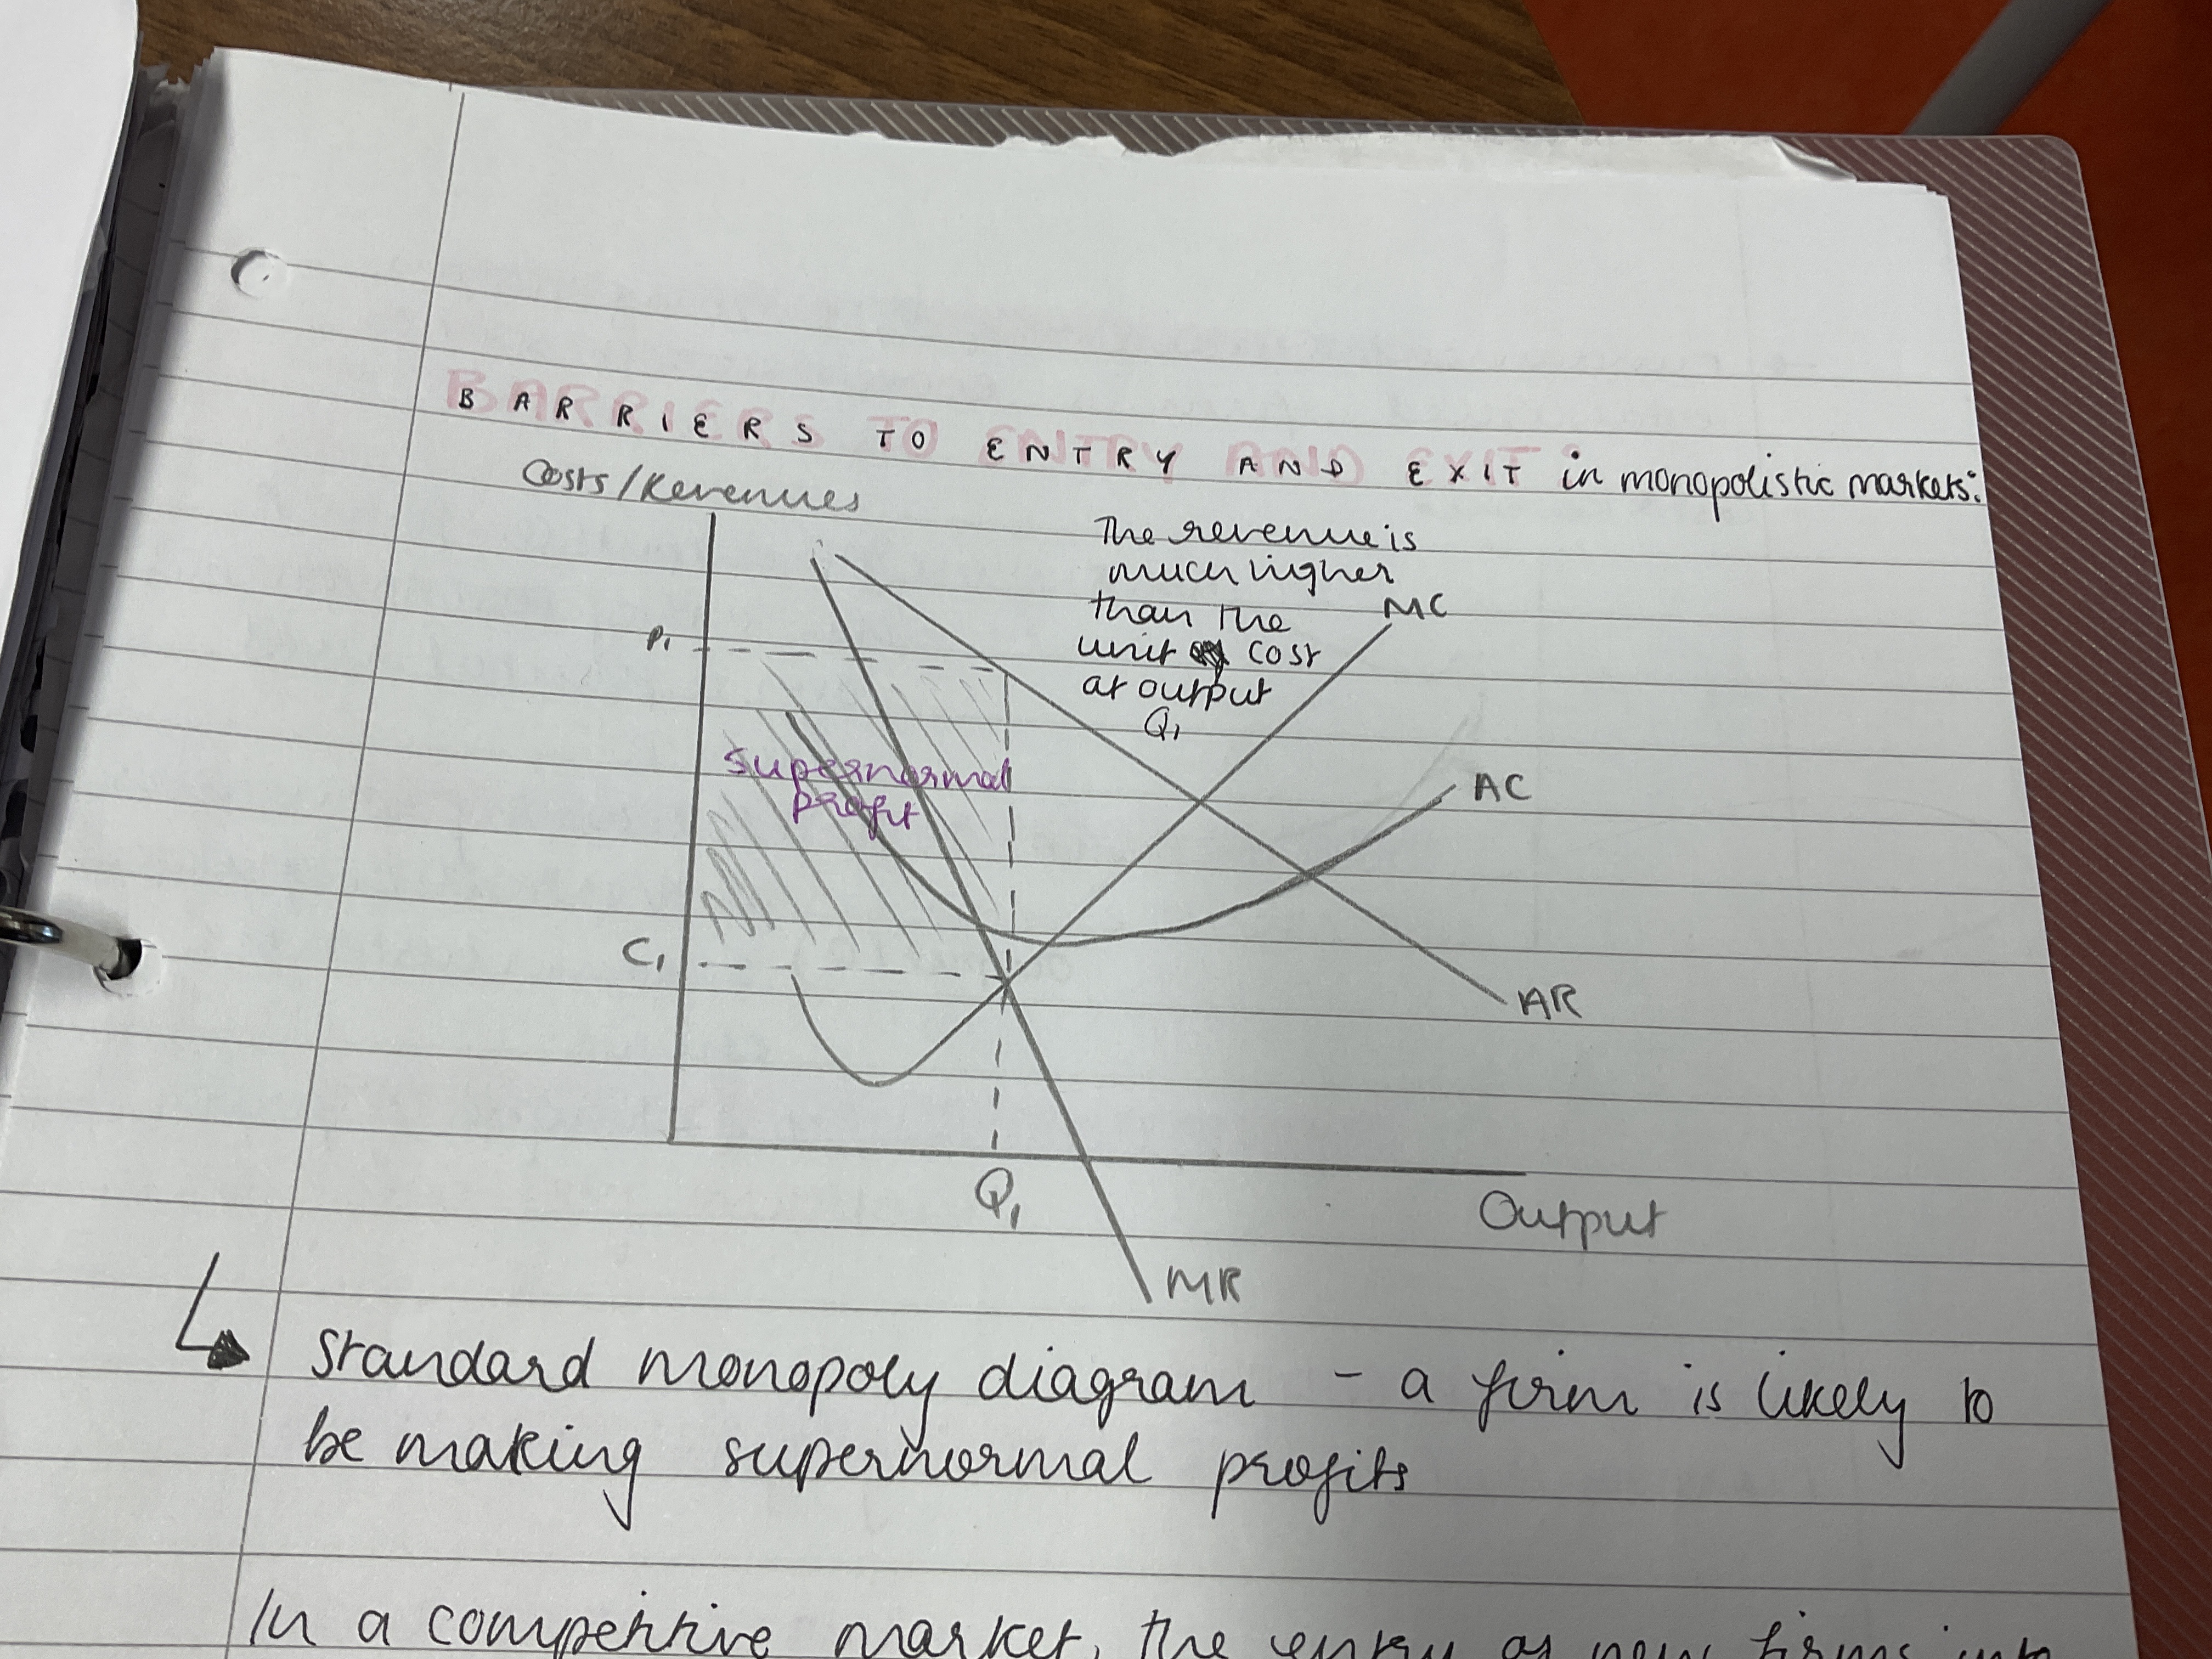 BARRIERS TO ENTRY AND EXIT in monopolistic markets:
Costs/Revenues
The revenue is
much higher
than the
unit cost
at output
Q₁
MC
P₁
supernormal
profit
AC
C₁
AR
Q₁
Output
MR
Standard monopoly diagram - a firm is likely to
be making supernormal profits
In a competitive market, the entry of new firms into